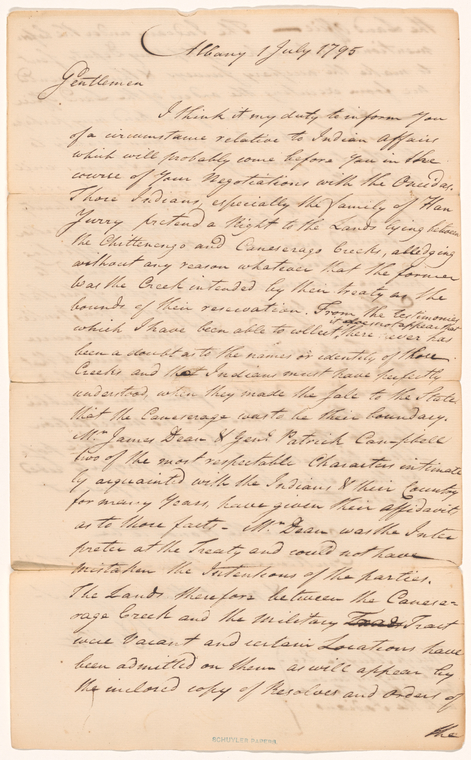 Albany 1 July 1795
Gentlemen
I think it my duty to inform You
of a circumstance relative to Indian affairs
which will probably come before You in the
course of Your Negotiations with the Oneidas.
Those Indians, especially the family of Han
Jurry pretend a Right to the Lands lying between
the Chittenengo and Caneserago Creeks, alledging
without any reason whatever that the former
was the Creek intended by their treaty as the
bounds of their reservation. From the testimonies
which I have been able to collect, it does not appear that there ever has
been a doubt as to the names or identity of those
Creeks and the Indians must have perfectly
understood, when they made the sale to the State
that the Caneserage was to be their boundary.
Mr. James Dean & Genl. Patrick Campbell
two of the most respectable Characters intimate
ly acquainted with the Indians & their Country
for many Years, have given their affidavit
as to those facts - Mr. Dean was the Inter
preter at the Treaty and could not have
mistaken the Intentions of the parties.
The Lands therefore between the Caneser-
rage Creek and the military Tract
were Vacant and certain Locations have
been admitted on them as will appear by
the inclosed copy of Resolves and Orders of
the
SCHUYLER PAPERS